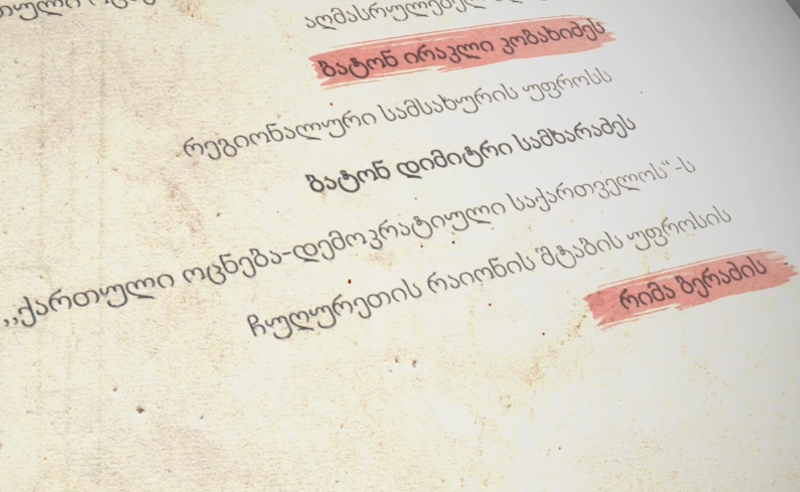 ბატონ ირაკლი კობახიძეს
რეგიონალური სამსახურის უფროსს
ბატონ დიმიტრი სამხარაძეს
„ქართული ოცნება-დემოკრატიული საქართველოს“-ს
ჩუღურეთის რაიონის შტაბის უფროსის
რიმა ბერაძის